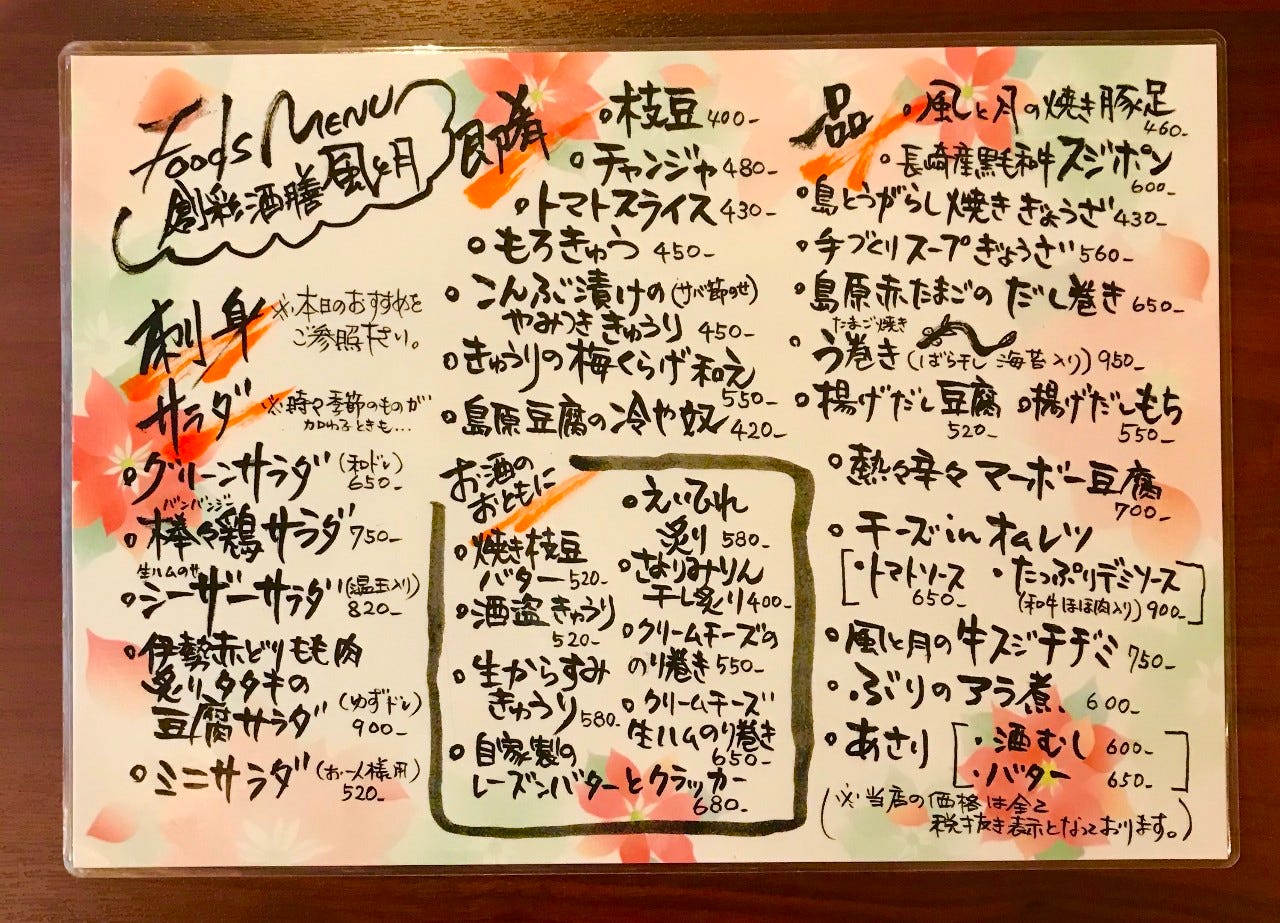 Foods MENU
創彩酒膳 風と月
刺身
※本日のおすすめを
ご参照下さい。
サラダ
※時々季節のものが
加わるときも…
・グリーンサラダ (和ドレ)
650-
バンバンジー
・棒々鶏サラダ 750-
生ハムのせ
・シーザーサラダ (温玉入り)
820-
・伊勢赤どりもも肉
炙りタタキの
豆腐サラダ (ゆずドレ)
900-
・ミニサラダ (お一人様用)
520-
即肴
・枝豆 400-
・チャンジャ 480-
・トマトスライス 430-
・もろきゅう 450-
・こんぶ漬けの (サバ節のせ)
やみつききゅうり 450-
・きゅうりの梅くらげ和え
550-
・島原豆腐の冷や奴 420-
お酒の
おともに
・焼き枝豆
バター 520-
・酒盗きゅうり
520-
・生からすみ
きゅうり 580-
・自家製の
レーズンバターとクラッカー
680-
・えいひれ
炙り 580-
・さよりみりん
干し炙り 400-
・クリームチーズの
のり巻き 550-
・クリームチーズ
生ハムのり巻き
650-
品
・風と月の焼き豚足
460-
・長崎産黒毛和牛スジポン
600-
・島とうがらし焼きぎょうざ 430-
・手づくりスープぎょうざ 560-
・島原赤たまごのだし巻き 650-
たまご焼き
・う巻き (ばら干し海苔入り) 950-
・揚げだし豆腐 ・揚げだしもち
520- 550-
・熱々辛々マーボー豆腐
700-
・チーズinオムレツ
・トマトソース ・たっぷりデミソース
650- (和牛ほほ肉入り) 900-
・風と月の牛スジチヂミ 750-
・ぶりのアラ煮 600-
・あさり
・酒むし 600-
・バター 650-
(※当店の価格は全て
税抜き表示となっております。)